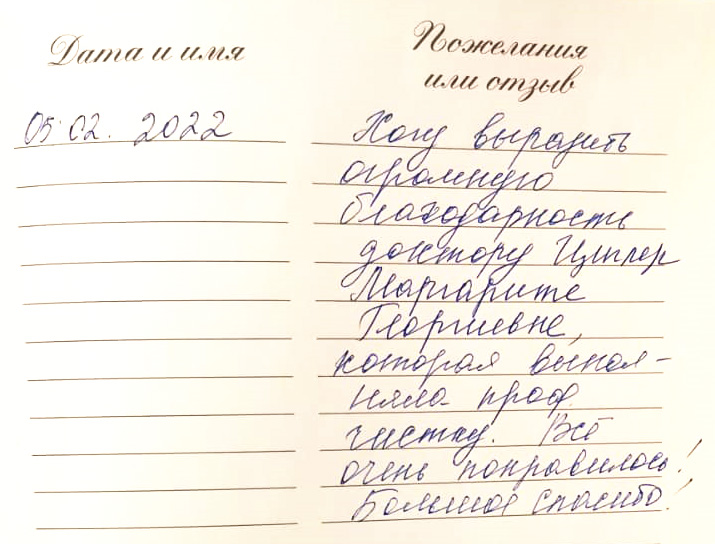 Дата и имя
Пожелания
или отзыв
05.02.2022
Хочу выразить
огромную
благодарность
доктору
Маргарите
Георгиевне,
которая выпол-
няла проф
чистку. Всё
очень понравилось!
Большое спасибо!